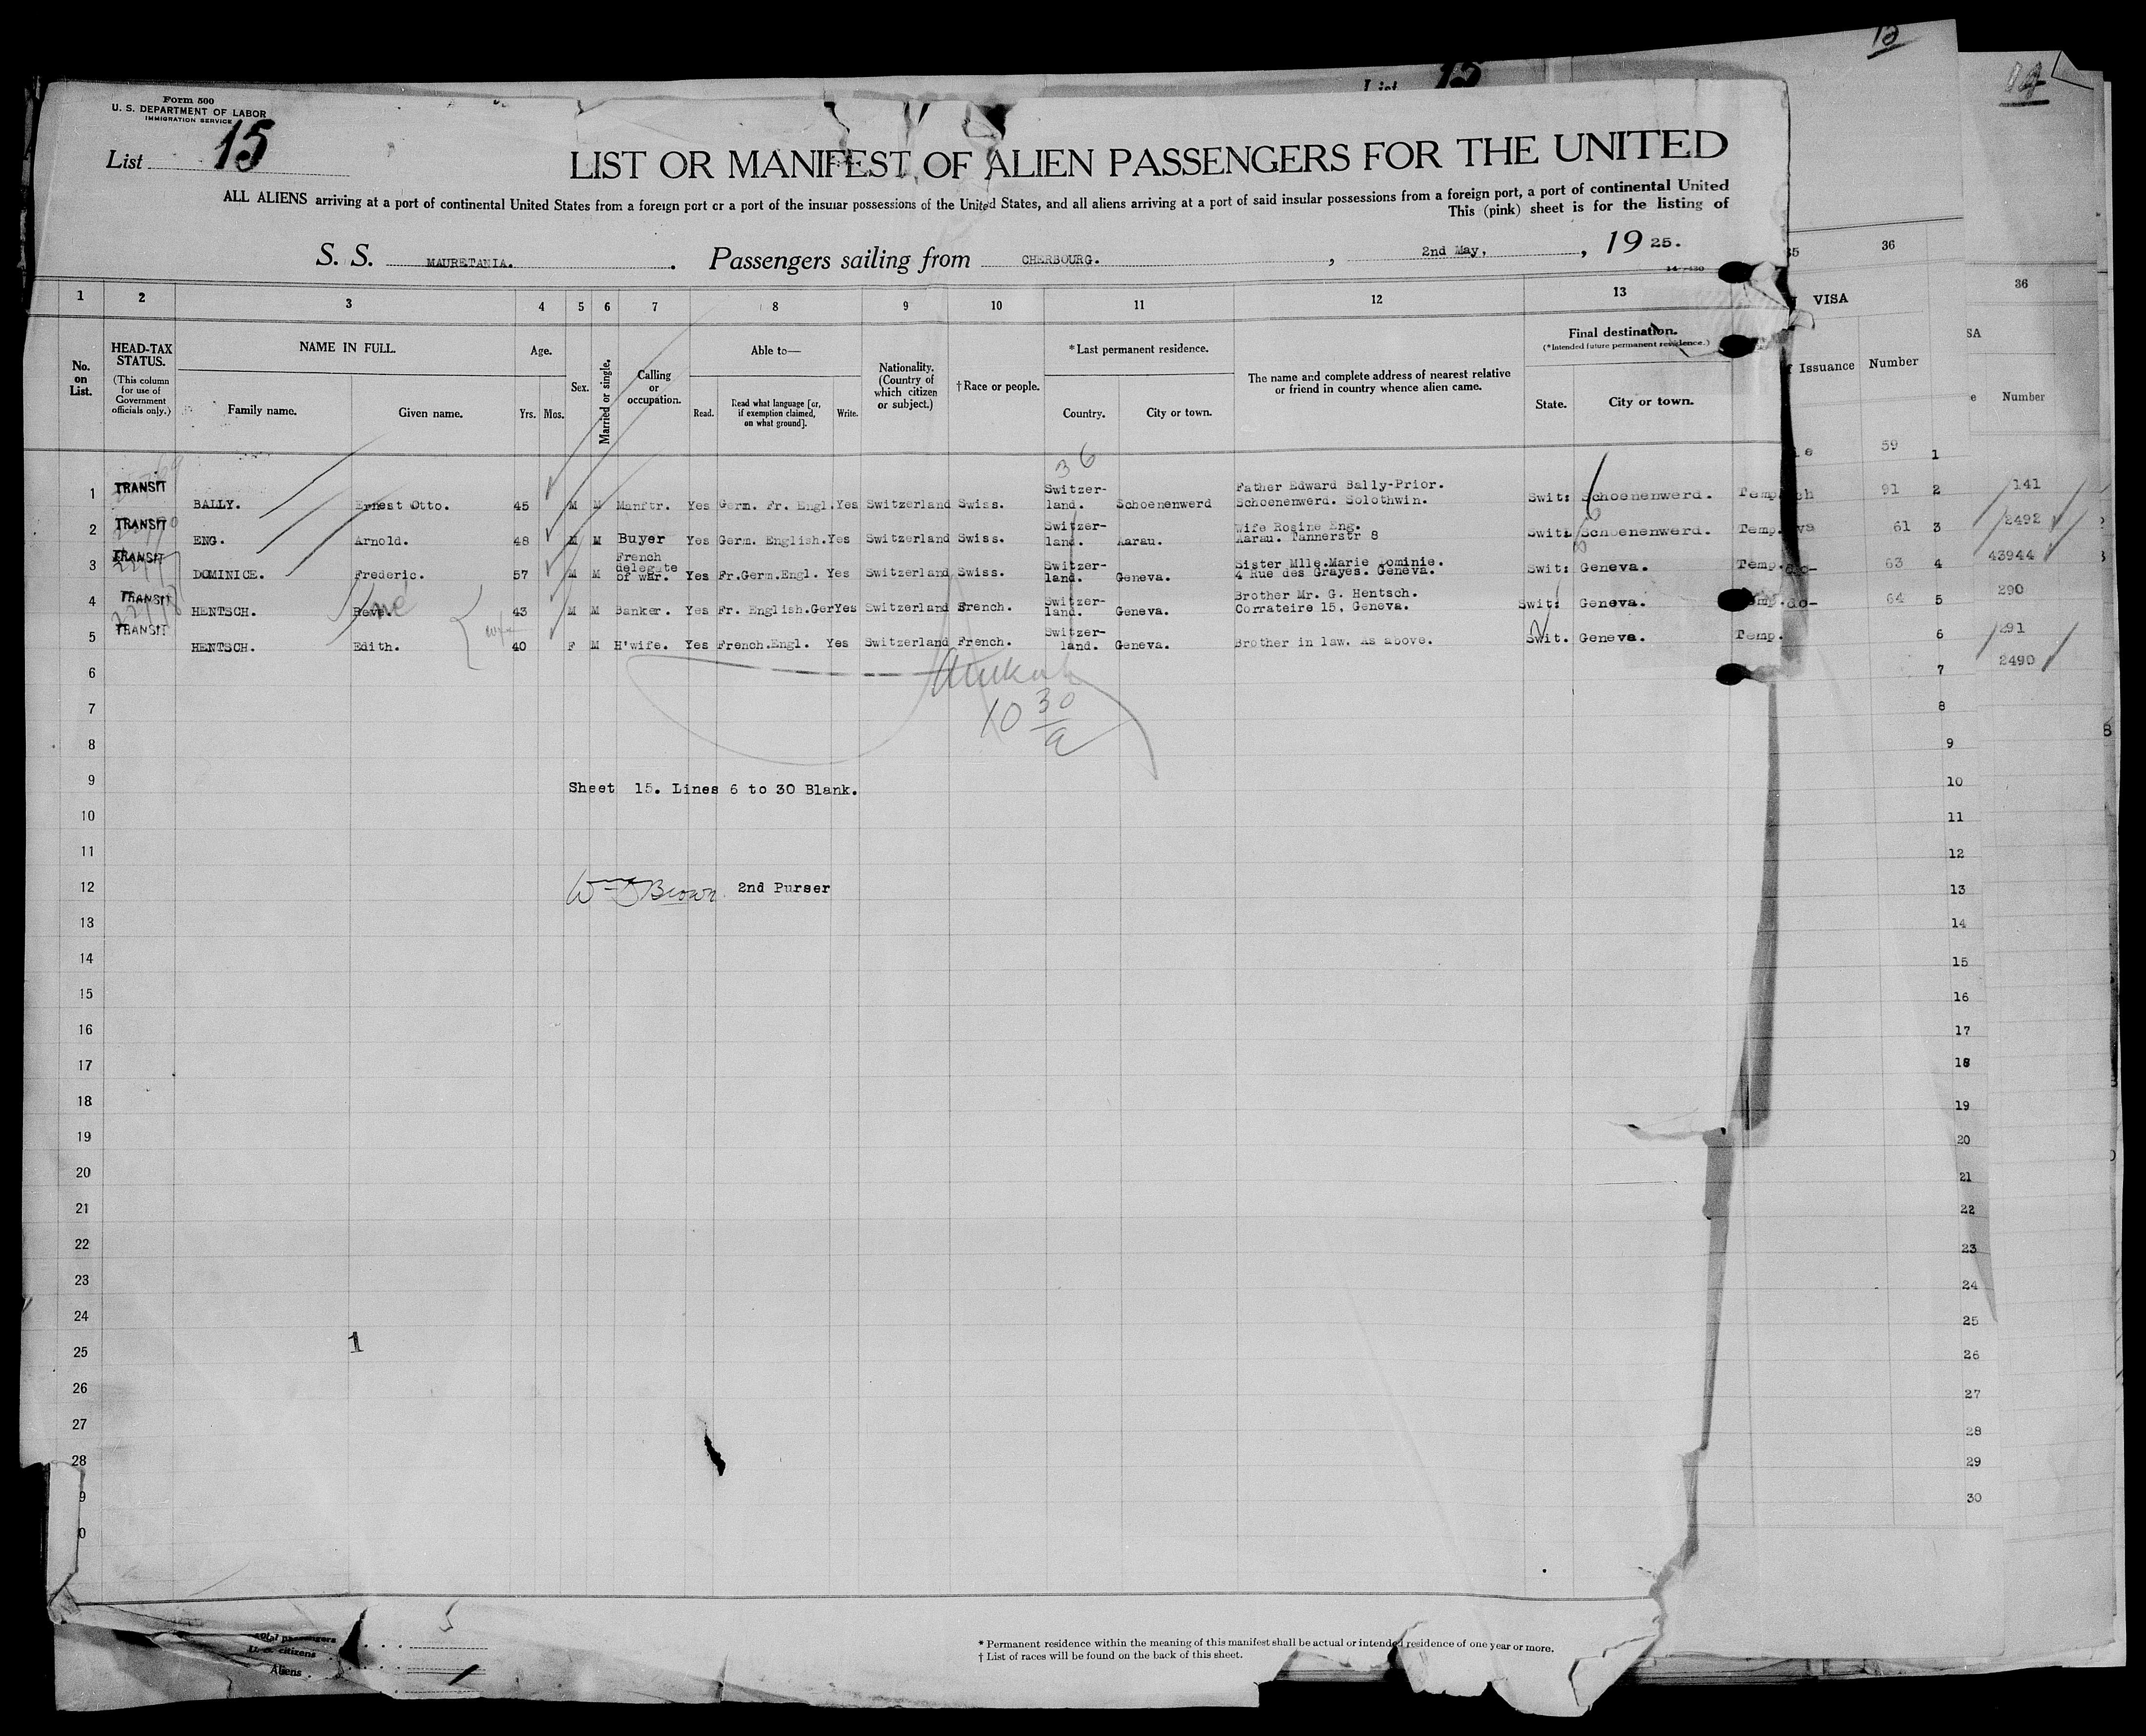 Form 500
U. S. DEPARTMENT OF LABOR
IMMIGRATION SERVICE
List 15
List 15
12
LIST OR MANIFEST OF ALIEN PASSENGERS FOR THE UNITED
ALL ALIENS arriving at a port of continental United States from a foreign port or a port of the insular possessions of the United States, and all aliens arriving at a port of said insular possessions from a foreign port, a port of continental United
This (pink) sheet is for the listing of
S. S. MAURETANIA. Passengers sailing from CHERBOURG. , 2nd May, , 19 25.
1 2 3 4 5 6 7 8 9 10 11 12 13 35 36 36
VISA
HEAD-TAX STATUS. (This column for use of Government officials only.)
No. on List.
NAME IN FULL.
Family name. Given name.
Age.
Yrs. Mos.
Sex.
Married or single.
Calling or occupation.
Able to—
Read. Read what language [or, if exemption claimed, on what ground]. Write.
Nationality. (Country of which citizen or subject.)
† Race or people.
*Last permanent residence.
Country. City or town.
The name and complete address of nearest relative or friend in country whence alien came.
Final destination.
(*Intended future permanent residence.)
State. City or town.
Issuance Number
Number
36
1 TRANSIT BALLY. Ernest Otto. 45 M M Manftr. Yes Germ. Fr. Engl. Yes Switzerland Swiss. Switzer-land. Schoenenwerd Father Edward Bally-Prior. Schoenenwerd. Solothwin. Swit: Schoenenwerd. Temp.
2 TRANSIT ENG. Arnold. 48 M M Buyer Yes Germ. English. Yes Switzerland Swiss. Switzer-land. Aarau. Wife Rosine Eng. Aarau. Tannerstr 8 Swit: Schoenenwerd. Temp.
3 TRANSIT DOMINICE. Frederic. 57 M M French delegate of war. Yes Fr.Germ.Engl. Yes Switzerland Swiss. Switzer-land. Geneva. Sister Mlle.Marie Dominie. 4 Rue des Grayes. Geneva. Swit: Geneva. Temp.
4 TRANSIT HENTSCH. Reve. 43 M M Banker. Yes Fr. English.Ger Yes Switzerland French. Switzer-land. Geneva. Brother Mr. G. Hentsch. Corrateire 15, Geneva. Swit: Geneva. Temp.
wife
5 TRANSIT HENTSCH. Edith. 40 F M H'wife. Yes French.Engl. Yes Switzerland French. Switzer-land. Geneva. Brother in law. As above. Swit. Geneva. Temp.
59 1
91 2 141
61 3 2492
63 4 43944
-do- 64 5 290
6 291
7 2490
6
7
8
9
10
11
12
13
14
15
16
17
18
19
20
21
22
23
24
25
26
27
28
9
0
10 30/a
Sheet 15. Lines 6 to 30 Blank.
Wm J Brown 2nd Purser
8
9
10
11
12
13
14
15
16
17
18
19
20
21
22
23
24
25
26
27
28
29
30
1
Total passengers 5
U. S. citizens
Aliens
* Permanent residence within the meaning of this manifest shall be actual or intended residence of one year or more.
† List of races will be found on the back of this sheet.